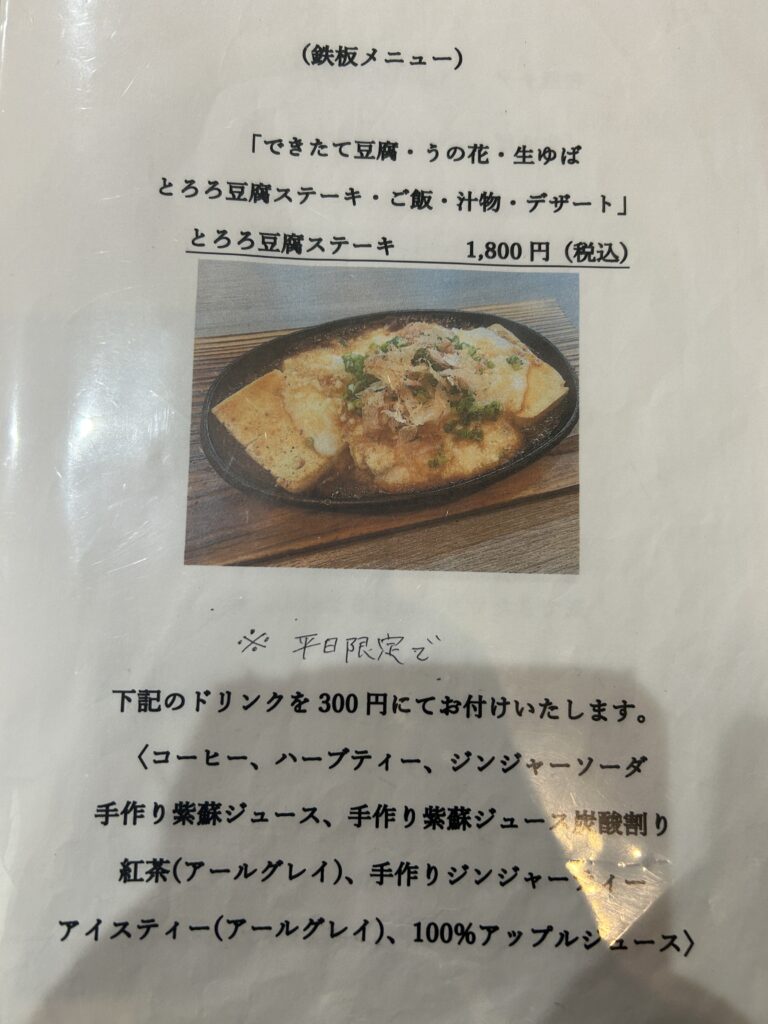 (鉄板メニュー)
「できたて豆腐・うの花・生ゆば
とろろ豆腐ステーキ・ご飯・汁物・デザート」
とろろ豆腐ステーキ 1,800円（税込）
※ 平日限定で
下記のドリンクを300円にてお付けいたします。
〈コーヒー、ハーブティー、ジンジャーソーダ
手作り紫蘇ジュース、手作り紫蘇ジュース炭酸割り
紅茶(アールグレイ)、手作りジンジャーティー
アイスティー(アールグレイ)、100%アップルジュース〉